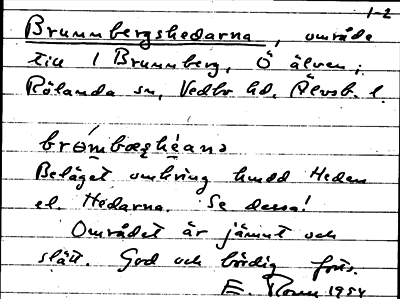 1-2
Brummbergshedarna, område
till 1 Brummberg, Ö älven;
Rölanda sn, Vedbo hd. Älvsb. l.
Beläget omkring hmdd Heden
el. Hedarna. Se dessa!
Området är jämnt och
slätt. God och bördig jord.
E. 1954